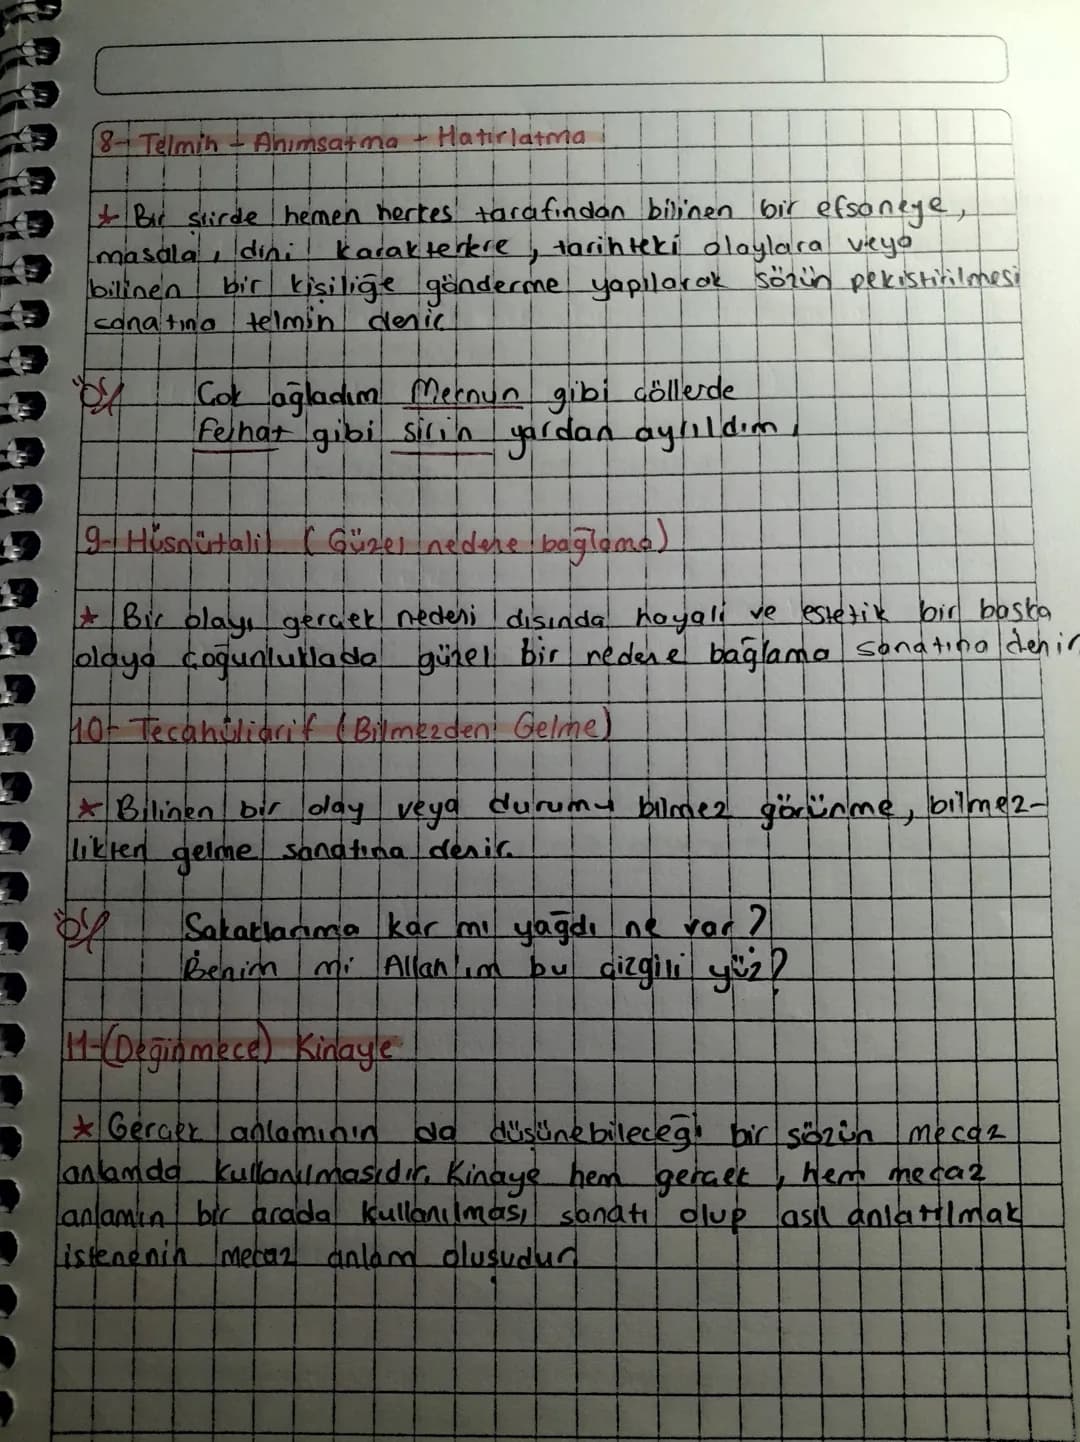 8- Telmih + Anımsatma + Hatırlatma
* Bir şiirde hemen herkes tarafından bilinen bir efsaneye,
masala, dini karakterlere, tarihteki olaylara veya
bilinen bir kişiliğe gönderme yapılarak sözün pekiştirilmesi
sanatına telmih denir.
ÖR/ Çok ağladım Mecnun gibi çöllerde
Ferhat gibi şirin yardan ayrıldım.
9- Hüsnütalil (Güzel nedene bağlama)
* Bir olayı gerçek nedeni dışında hayali ve estetik bir başka
olaya çoğunluklada güzel bir nedene bağlama sanatına denir
10- Tecahüliarif (Bilmezden Gelme)
* Bilinen bir olay veya durumu bilmez görünme, bilmez-
likten gelme sanatına denir.
ÖR/ Şakaklarıma kar mı yağdı ne var?
Benim mi Allah'ım bu çizgili yüz?
11-(Değinmece) Kinaye
* Gerçek anlamının da düşünebileceği bir sözün mecaz
anlamda kullanılmasıdır. Kinaye hem gerçek, hem mecaz
anlamın bir arada kullanılması sanatı olup asıl anlatılmak
istenenin mecaz anlam oluşudur.